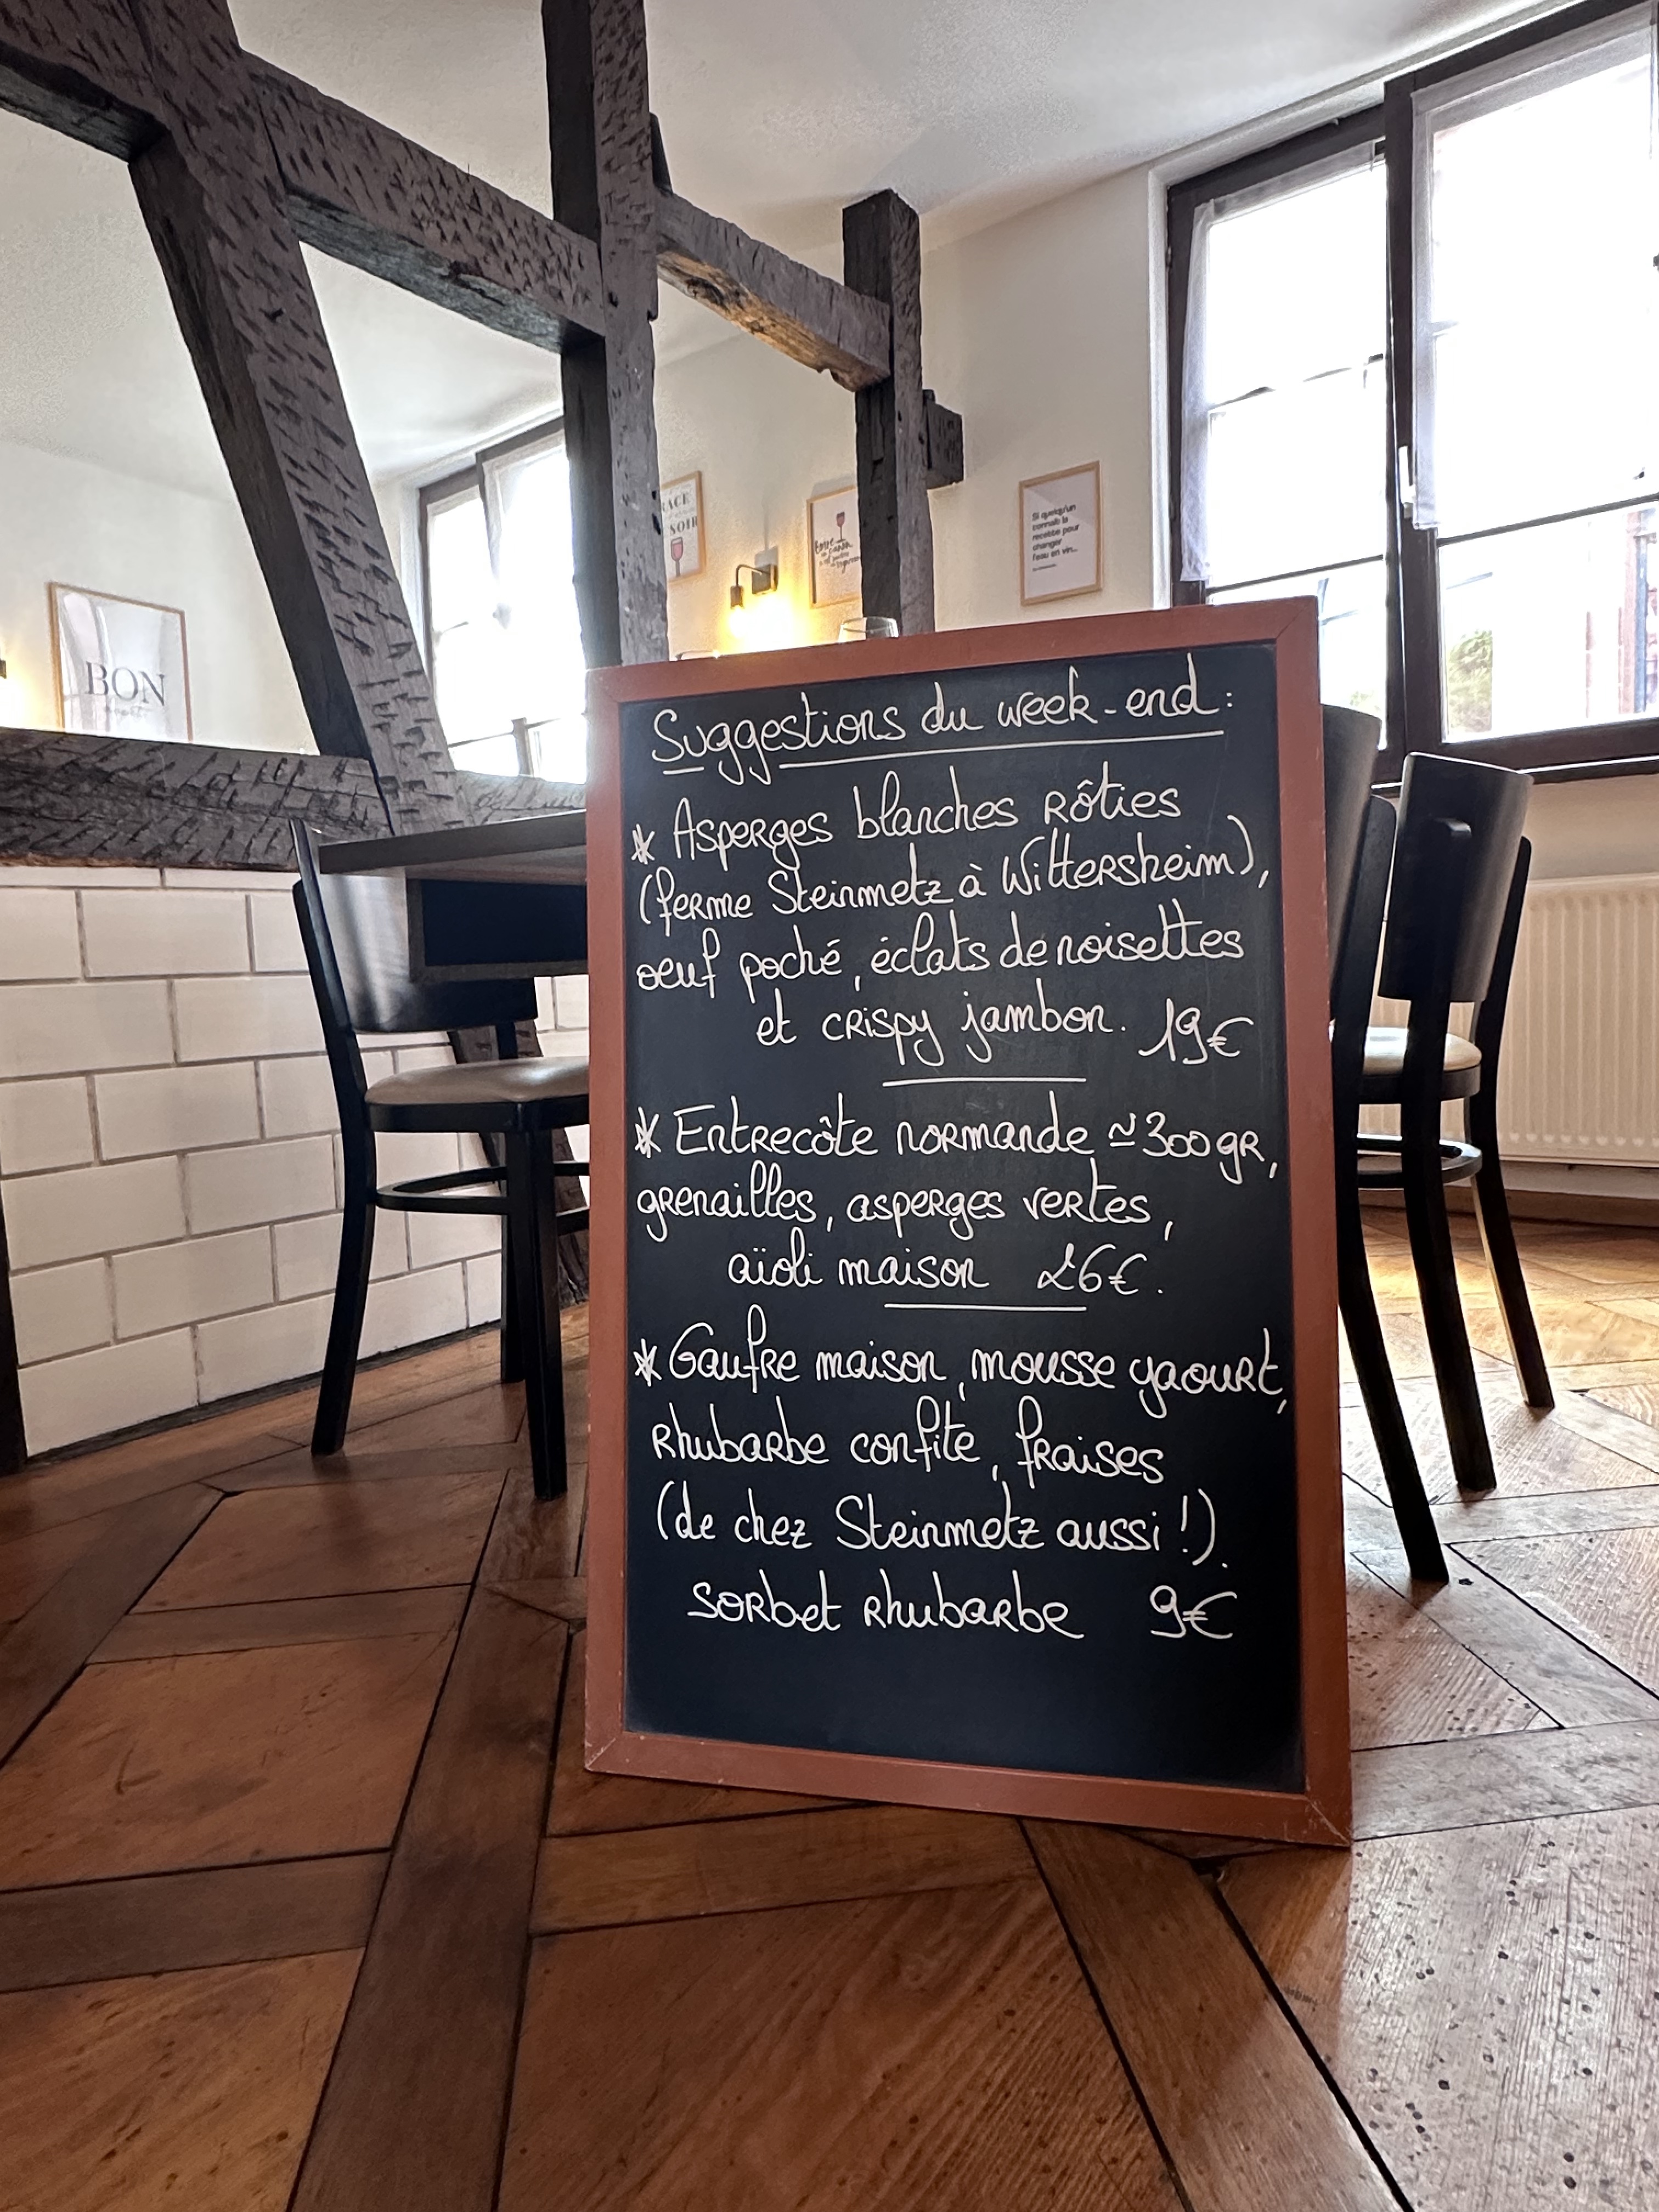 RACE
SOIR
Si quelqu'un
connaît la
recette pour
changer
l'eau en vin...
BON
Suggestions du week-end :
* Asperges blanches rôties
(ferme Steinmetz à Wittersheim),
oeuf poché, éclats de noisettes
et crispy jambon. 19€
* Entrecôte normande ≃ 300 gr,
grenailles, asperges vertes,
aïoli maison 26€.
* Gaufre maison, mousse yaourt,
rhubarbe confite, fraises
(de chez Steinmetz aussi !).
sorbet rhubarbe 9€